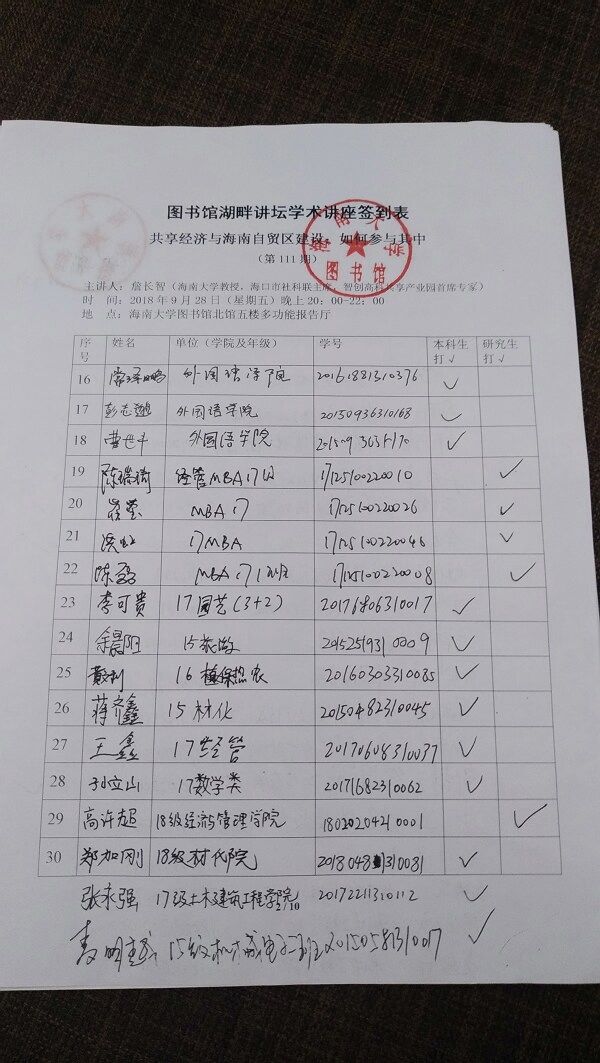 图书馆湖畔讲坛学术讲座签到表
共享经济与海南自贸区建设：如何参与其中
（第 111 期）
海南大学
图书馆
主讲人：詹长智（海南大学教授，海口市社科联主席；智创高科共享产业园首席专家）
时 间：2018 年 9 月 28 日（星期五）晚上 20：00-22：00
地 点：海南大学图书馆北馆五楼多功能报告厅
序号 姓名 单位（学院及年级） 学号 本科生打√ 研究生打√
16 外国语学院 20161881310376 √
17 彭志 外国语学院 20150936310168 √
18 曹世 外国语学院 √
19 陈瑞琦 经管MBA17级 17125100220010 √
20 MBA 17 17125100220026 √
21 17MBA 17125100220046 √
22 陈 MBA 17 1班 17125100220008 √
23 李可贵 17园艺(3+2) 20176806310017 √
24 余晨阳 15旅游 20152519310009 √
25 16植保热农 20160303310085 √
26 蒋齐鑫 15材化 20150482310045 √
27 王鑫 17经管 20170608310037 √
28 孙立山 17数学类 20171682310062 √
29 高许超 18级经济与管理学院 18020204210001 √
30 郑加刚 18级材化院 √
张永强 17级土木建筑工程学院 20172211310112 √
2/10
15级机械电子二班 20150581310017 √